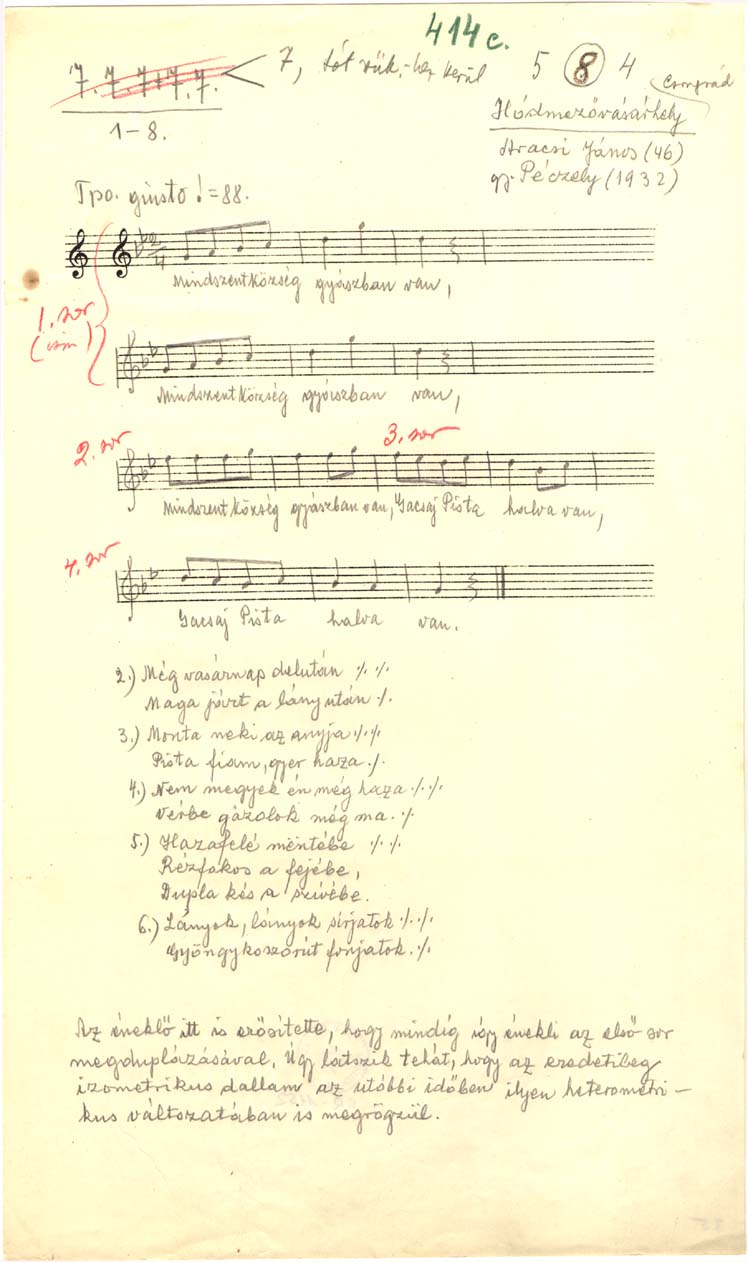 414c.
7. 7. 7+7. 7. < 7, tót rük.-hez kerül 5 8 4
1-8. Csongrád
Hódmezővásárhely
Aracsi János (46)
gy. Péczely (1932)
Tpo. giusto ♩=88.
1. sor
(ism)
Mindszent község gyászban van,
Mindszent község gyászban van,
2. sor 3. sor
Mindszent község gyászban van, Gacsaj Pista halva van,
4. sor
Gacsaj Pista halva van.
2.) Még vasárnap delután ٪ ٪
Maga járt a lány után ٪
3.) Monta neki az anyja ٪ ٪
Pista fiam, gyer haza ٪
4.) Nem megyek én még haza ٪ ٪
Vérbe gázolok még ma. ٪
5.) Hazafelé mentébe ٪ ٪
Rézfokos a fejébe,
Dupla kés a szívébe.
6.) Lányok, lányok sírjatok ٪ ٪
Gyöngykoszorút fonjatok ٪
Az éneklő itt is erősítette, hogy mindíg így énekli az első sor
megduplázásával. Úgy látszik tehát, hogy az eredetileg
izometrikus dallam az utóbbi időben ilyen heterometri-
kus változatában is megrögzül.